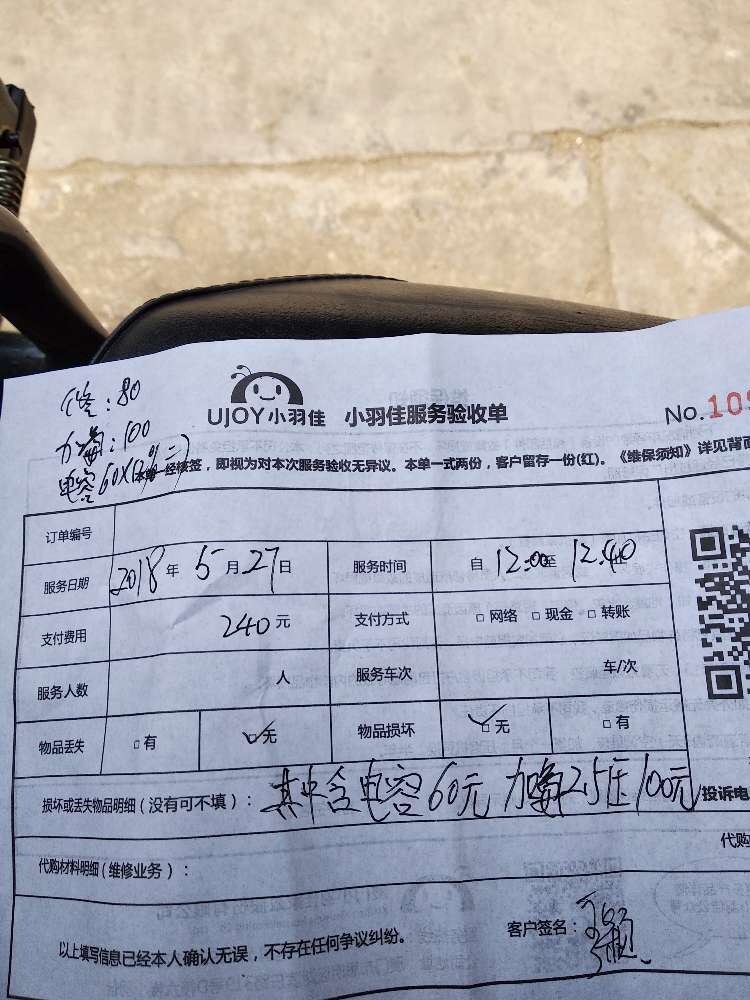 80
加氟：100
电容60
UJOY小羽佳 小羽佳服务验收单
No.109
本单一经核签，即视为对本次服务验收无异议。本单一式两份，客户留存一份(红)。《维保须知》详见背面
订单编号
服务日期 2018年5月27日 服务时间 自12:00至12:40止
支付费用 240元 支付方式 □网络 □现金 □转账
服务人数 人 服务车次 车/次
物品丢失 □有 ☑无 物品损坏 ☑无 □有
损坏或丢失物品明细（没有可不填）： 其中含电容60元 加氟2.5压100元
投诉电
代购
代购材料明细（维修业务）：
以上填写信息已经本人确认无误，不存在任何争议纠纷。 客户签名：